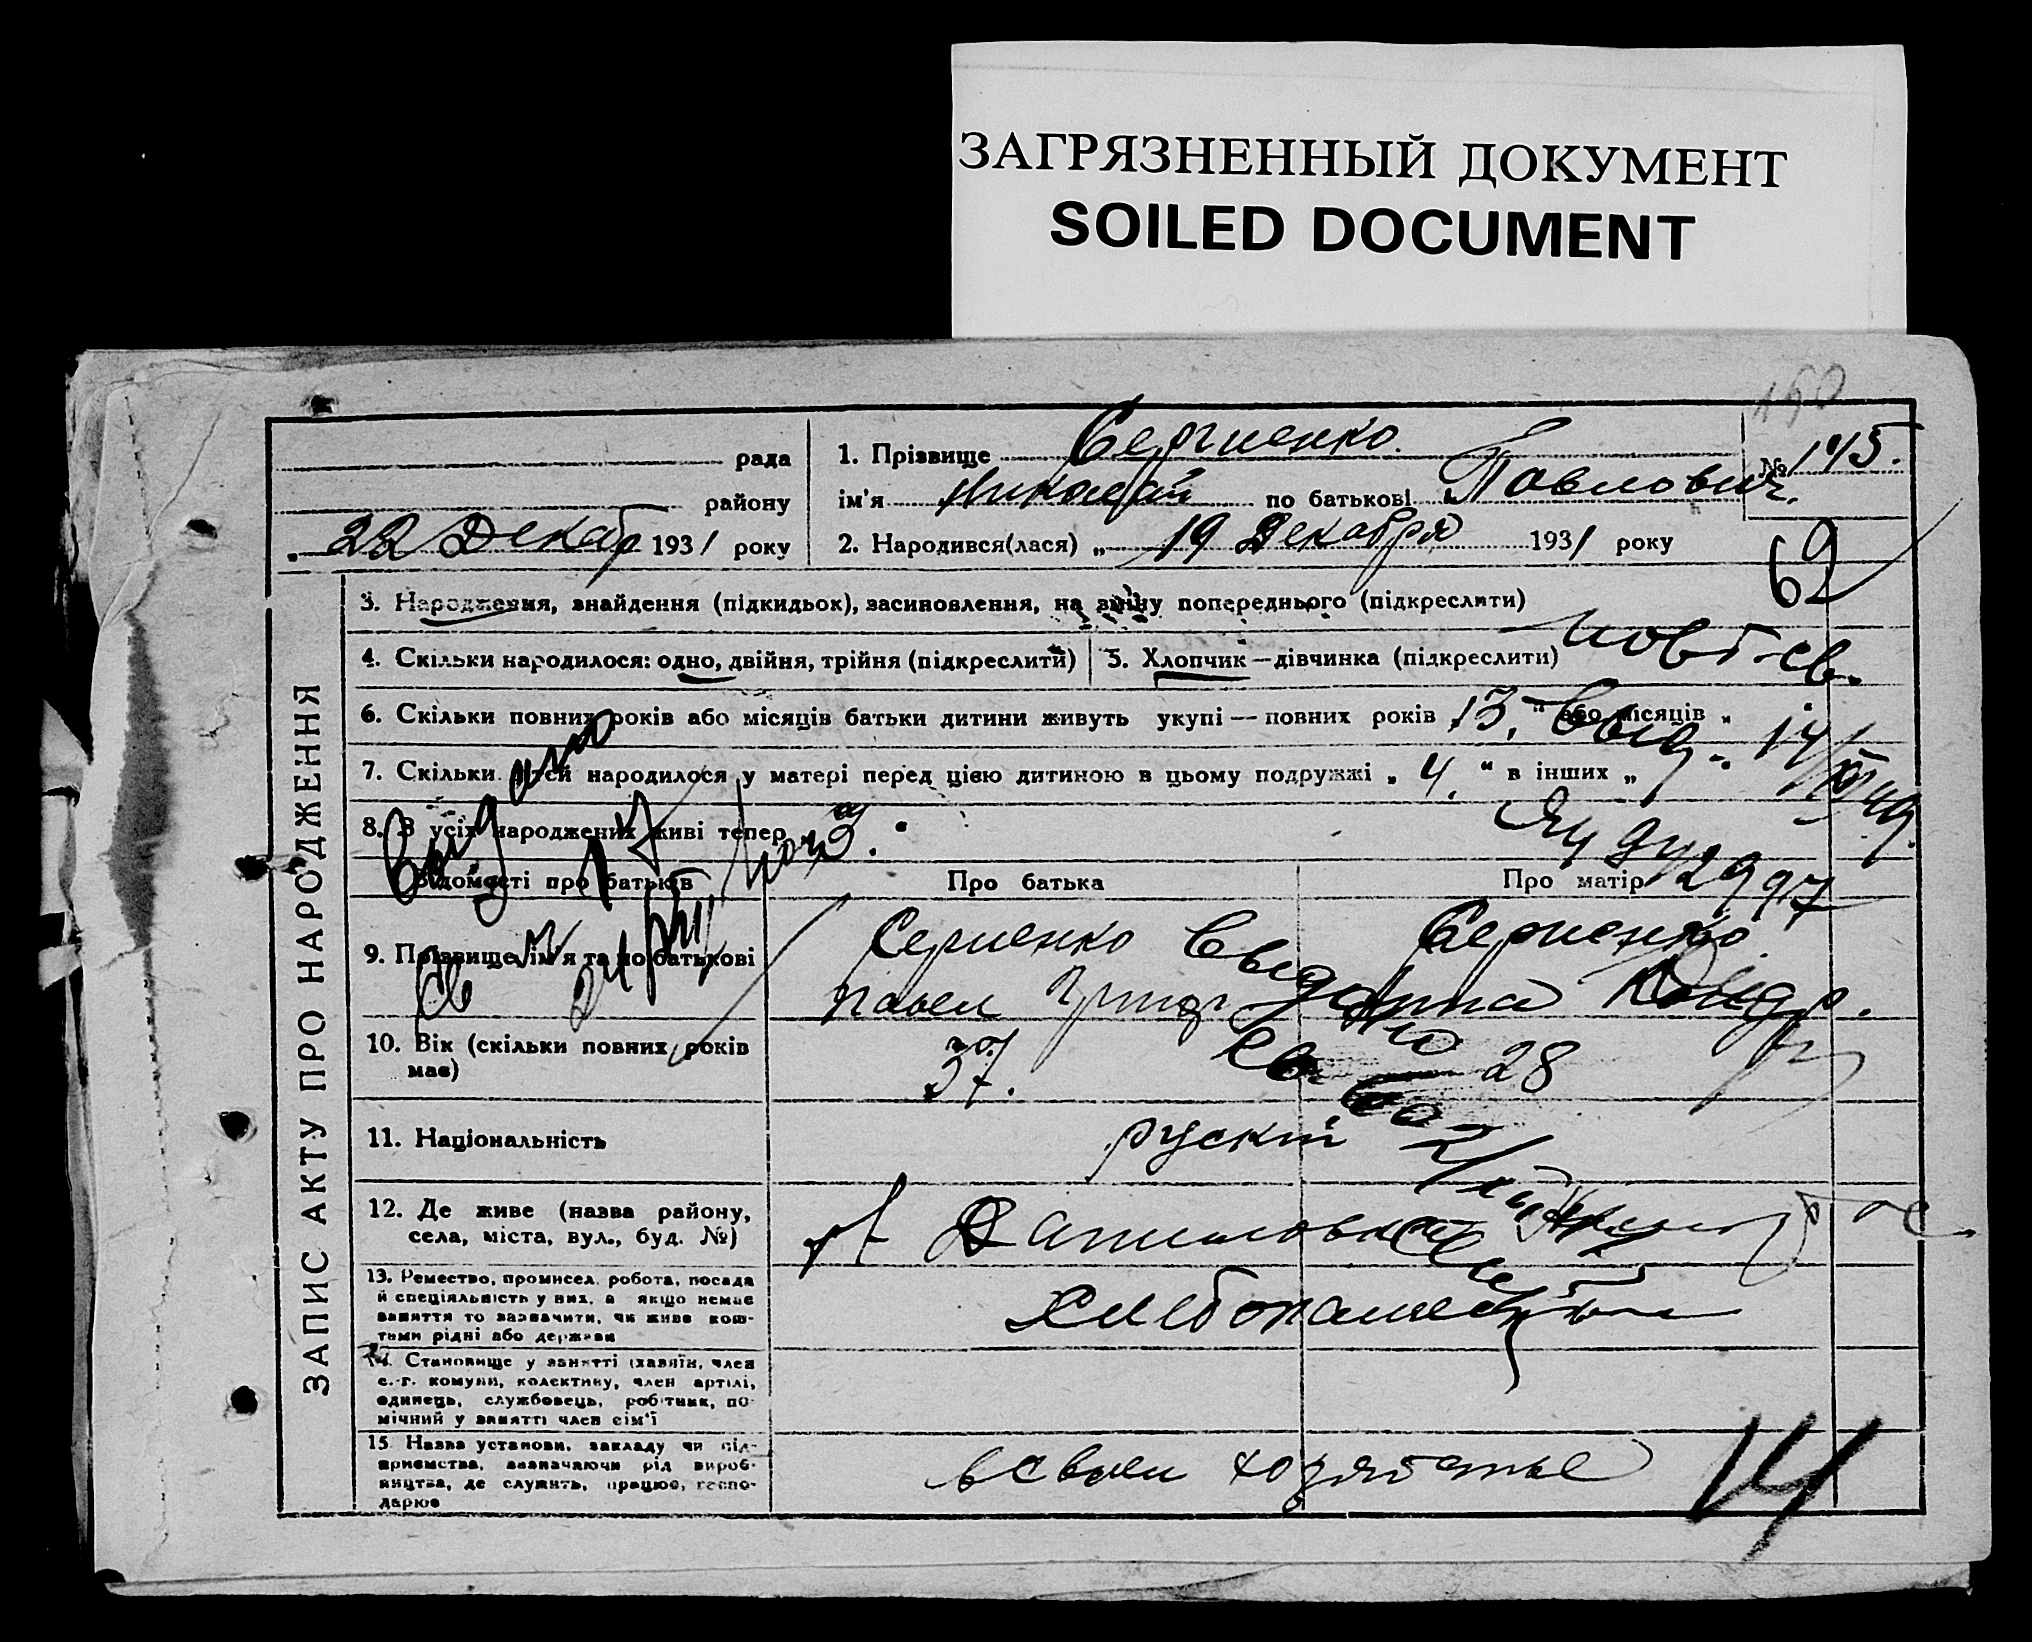 ЗАГРЯЗНЕННЫЙ ДОКУМЕНТ
SOILED DOCUMENT
150
рада
району
22 Декабр 1931 року
1. Прізвище Сергиенко.
ім'я Николай по батькові Павлович.
№ 1045.
2. Народився(лася) „ 19 Декабря 1931 року
62
ЗАПИС АКТУ ПРО НАРОДЖЕННЯ
3. Народження, знайдення (підкидьок), засиновлення, на зміну попереднього (підкреслити)
4. Скільки народилося: одно, двійня, трійня (підкреслити)
5. Хлопчик — дівчинка (підкреслити)
повт. св.
6. Скільки повних років або місяців батьки дитини живуть укупі — повних років 13. " або місяців "
7. Скільки дітей народилося у матері перед цією дитиною в цьому подружжі „ 4. " в інших „
8. З усіх народжених живі тепер 3.
Відомості про батьків
Про батька
Про матір
9. Прізвище, ім'я та по батькові
Сергиенко
Павел Григор
Сергиенко
Анна
10. Вік (скільки повних років має)
37.
28
11. Національність
руский
12. Де живе (назва району, села, міста, вул., буд. №)
13. Ремество, промисел, робота, посада
й спеціяльність у них, а якщо немає
заняття то зазначити, чи живе кош-
тами рідні або держави
14. Становище у занятті (хазяїн, член
с.-г. комуни, колективу, член артілі,
одинець, службовець, робітник, по-
мічний у занятті член сім'ї
15. Назва установи, закладу чи під-
приємства, зазначаючи рід вироб-
ництва, де служить, працює, госпо-
дарює
14